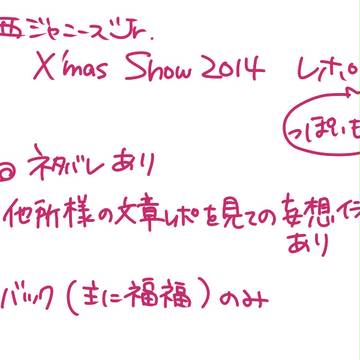 西ジャニーズJr.
X'mas Show 2014 レポ
っぽいも
◎ ネタバレあり
他所様の文章レポを見ての妄想イラ
あり
バック(主に福福)のみ